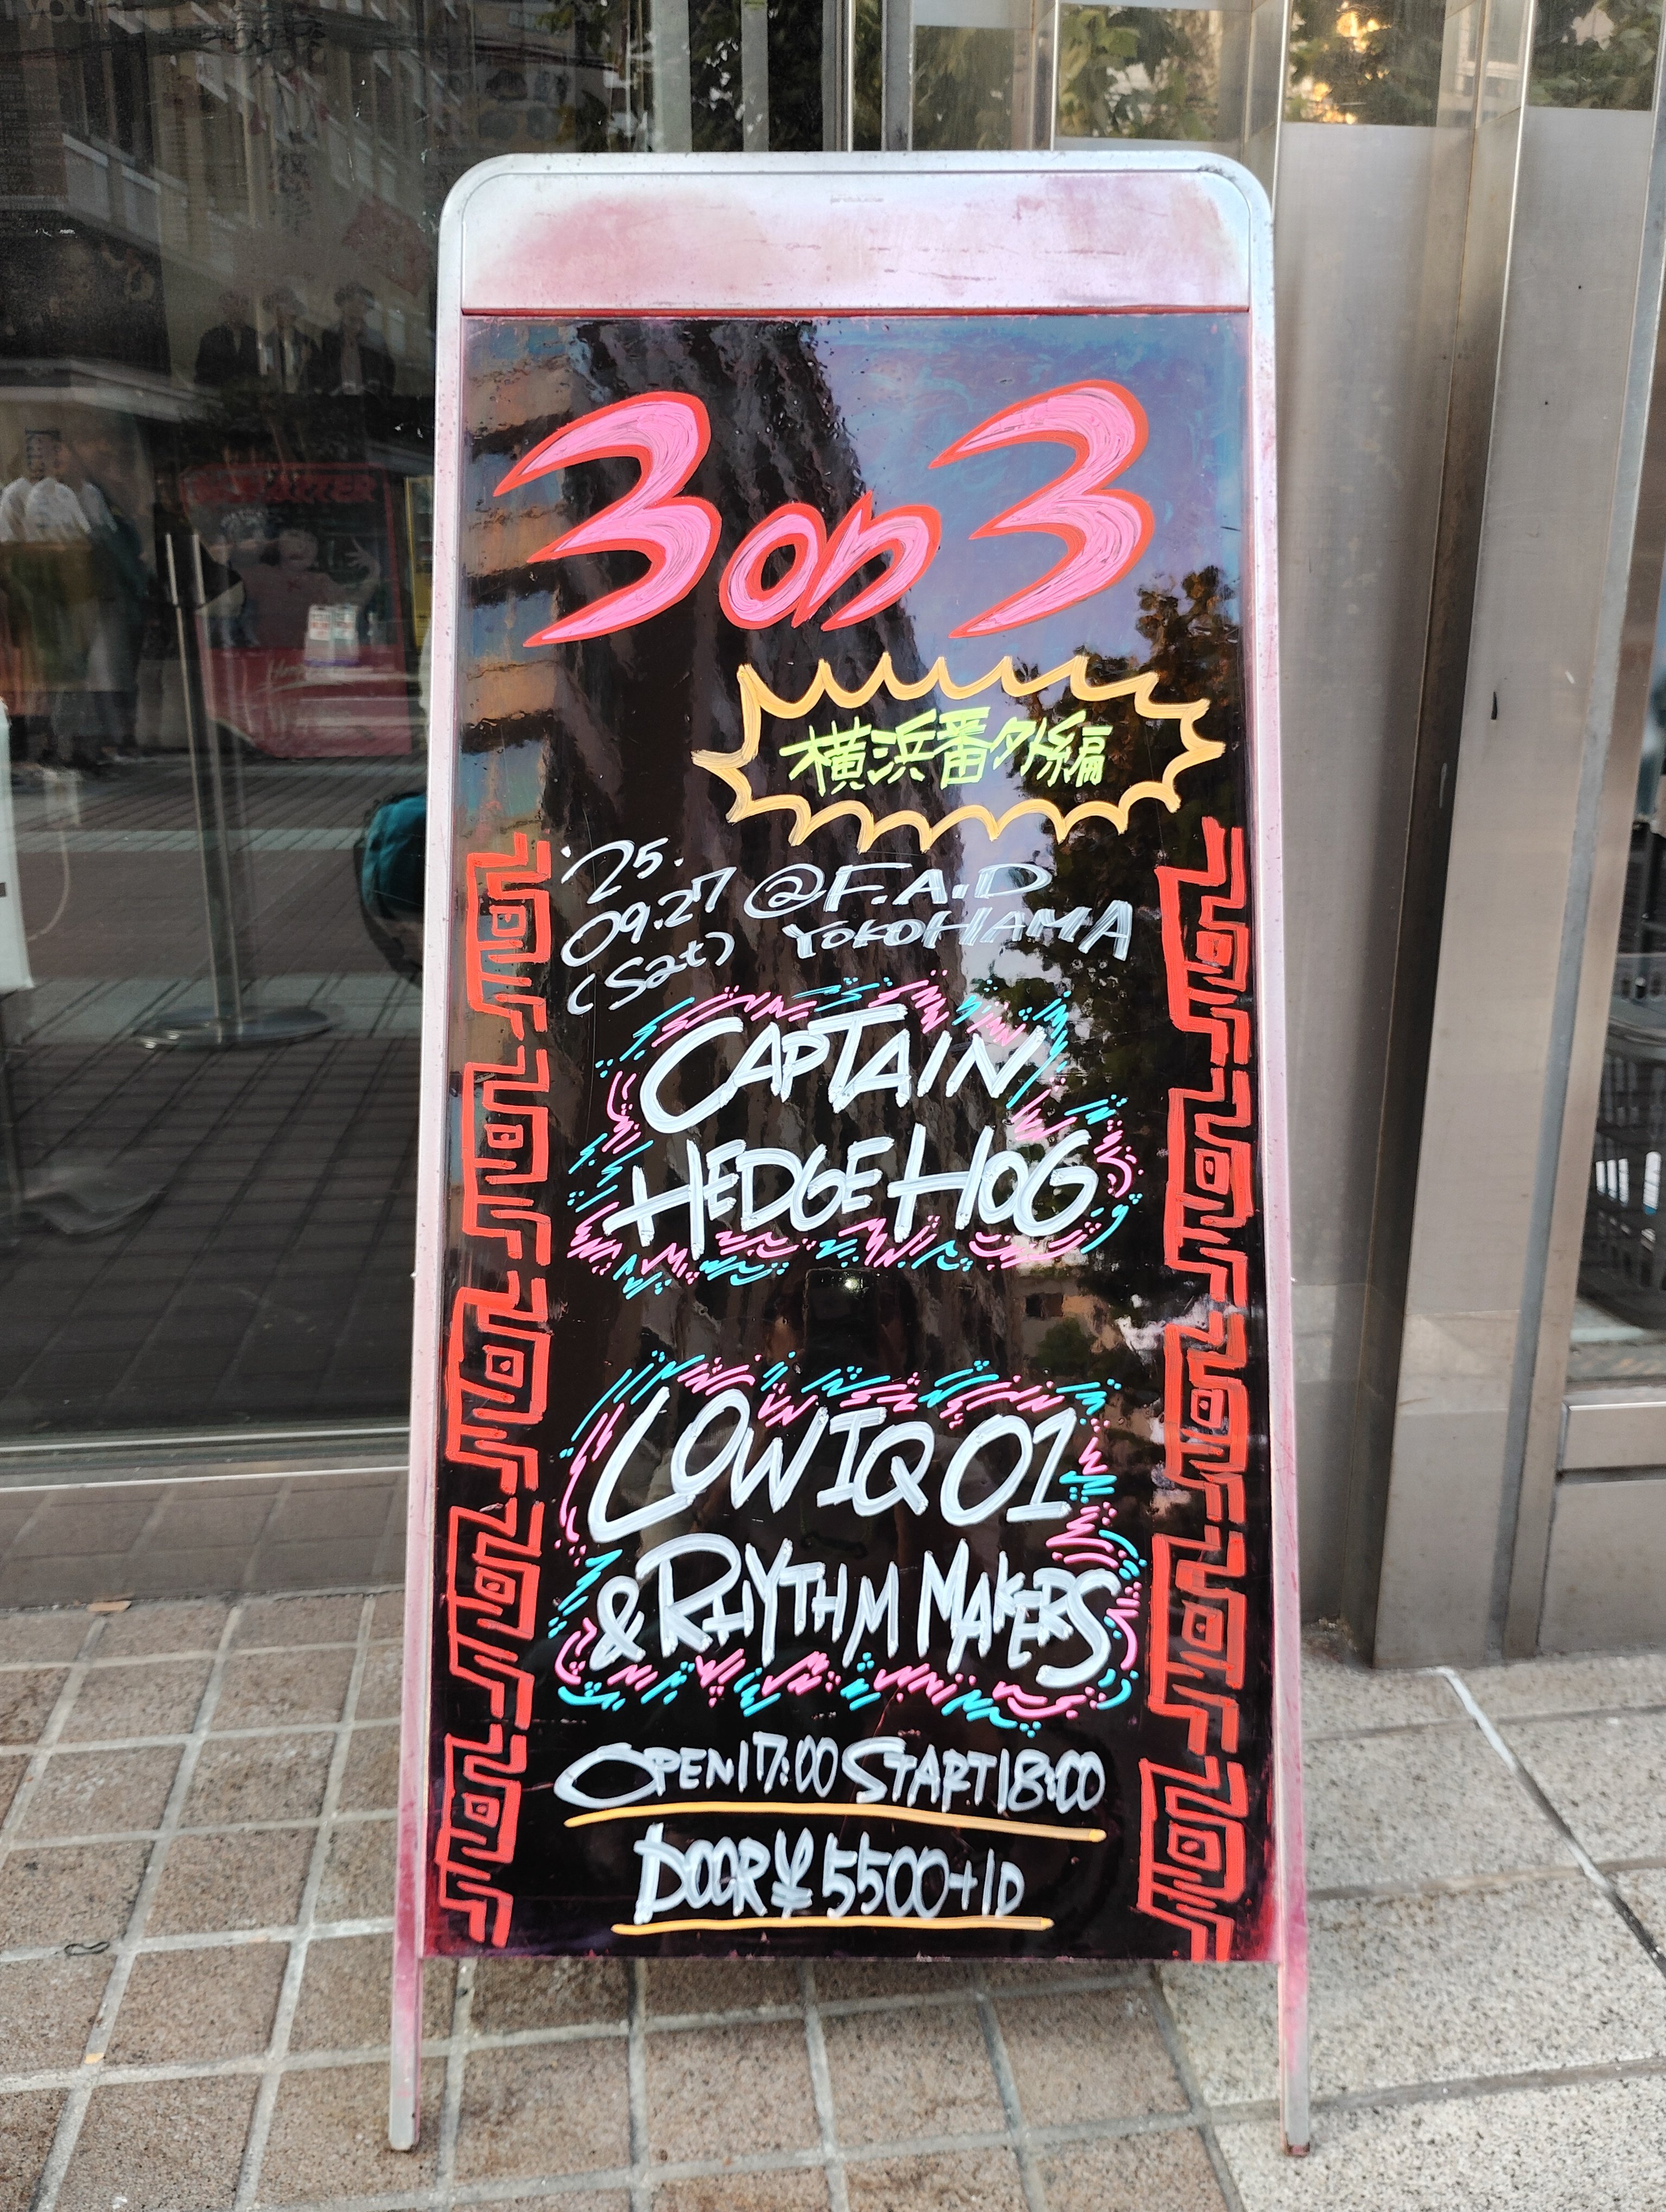 3 on 3
横浜番外編
'25.
09.27
(Sat)
@F.A.D
YOKOHAMA
CAPTAIN
HEDGEHOG
LOW IQ 01
& RHYTHM MAKERS
OPEN 17:00 START 18:00
DOOR ¥5500+1D